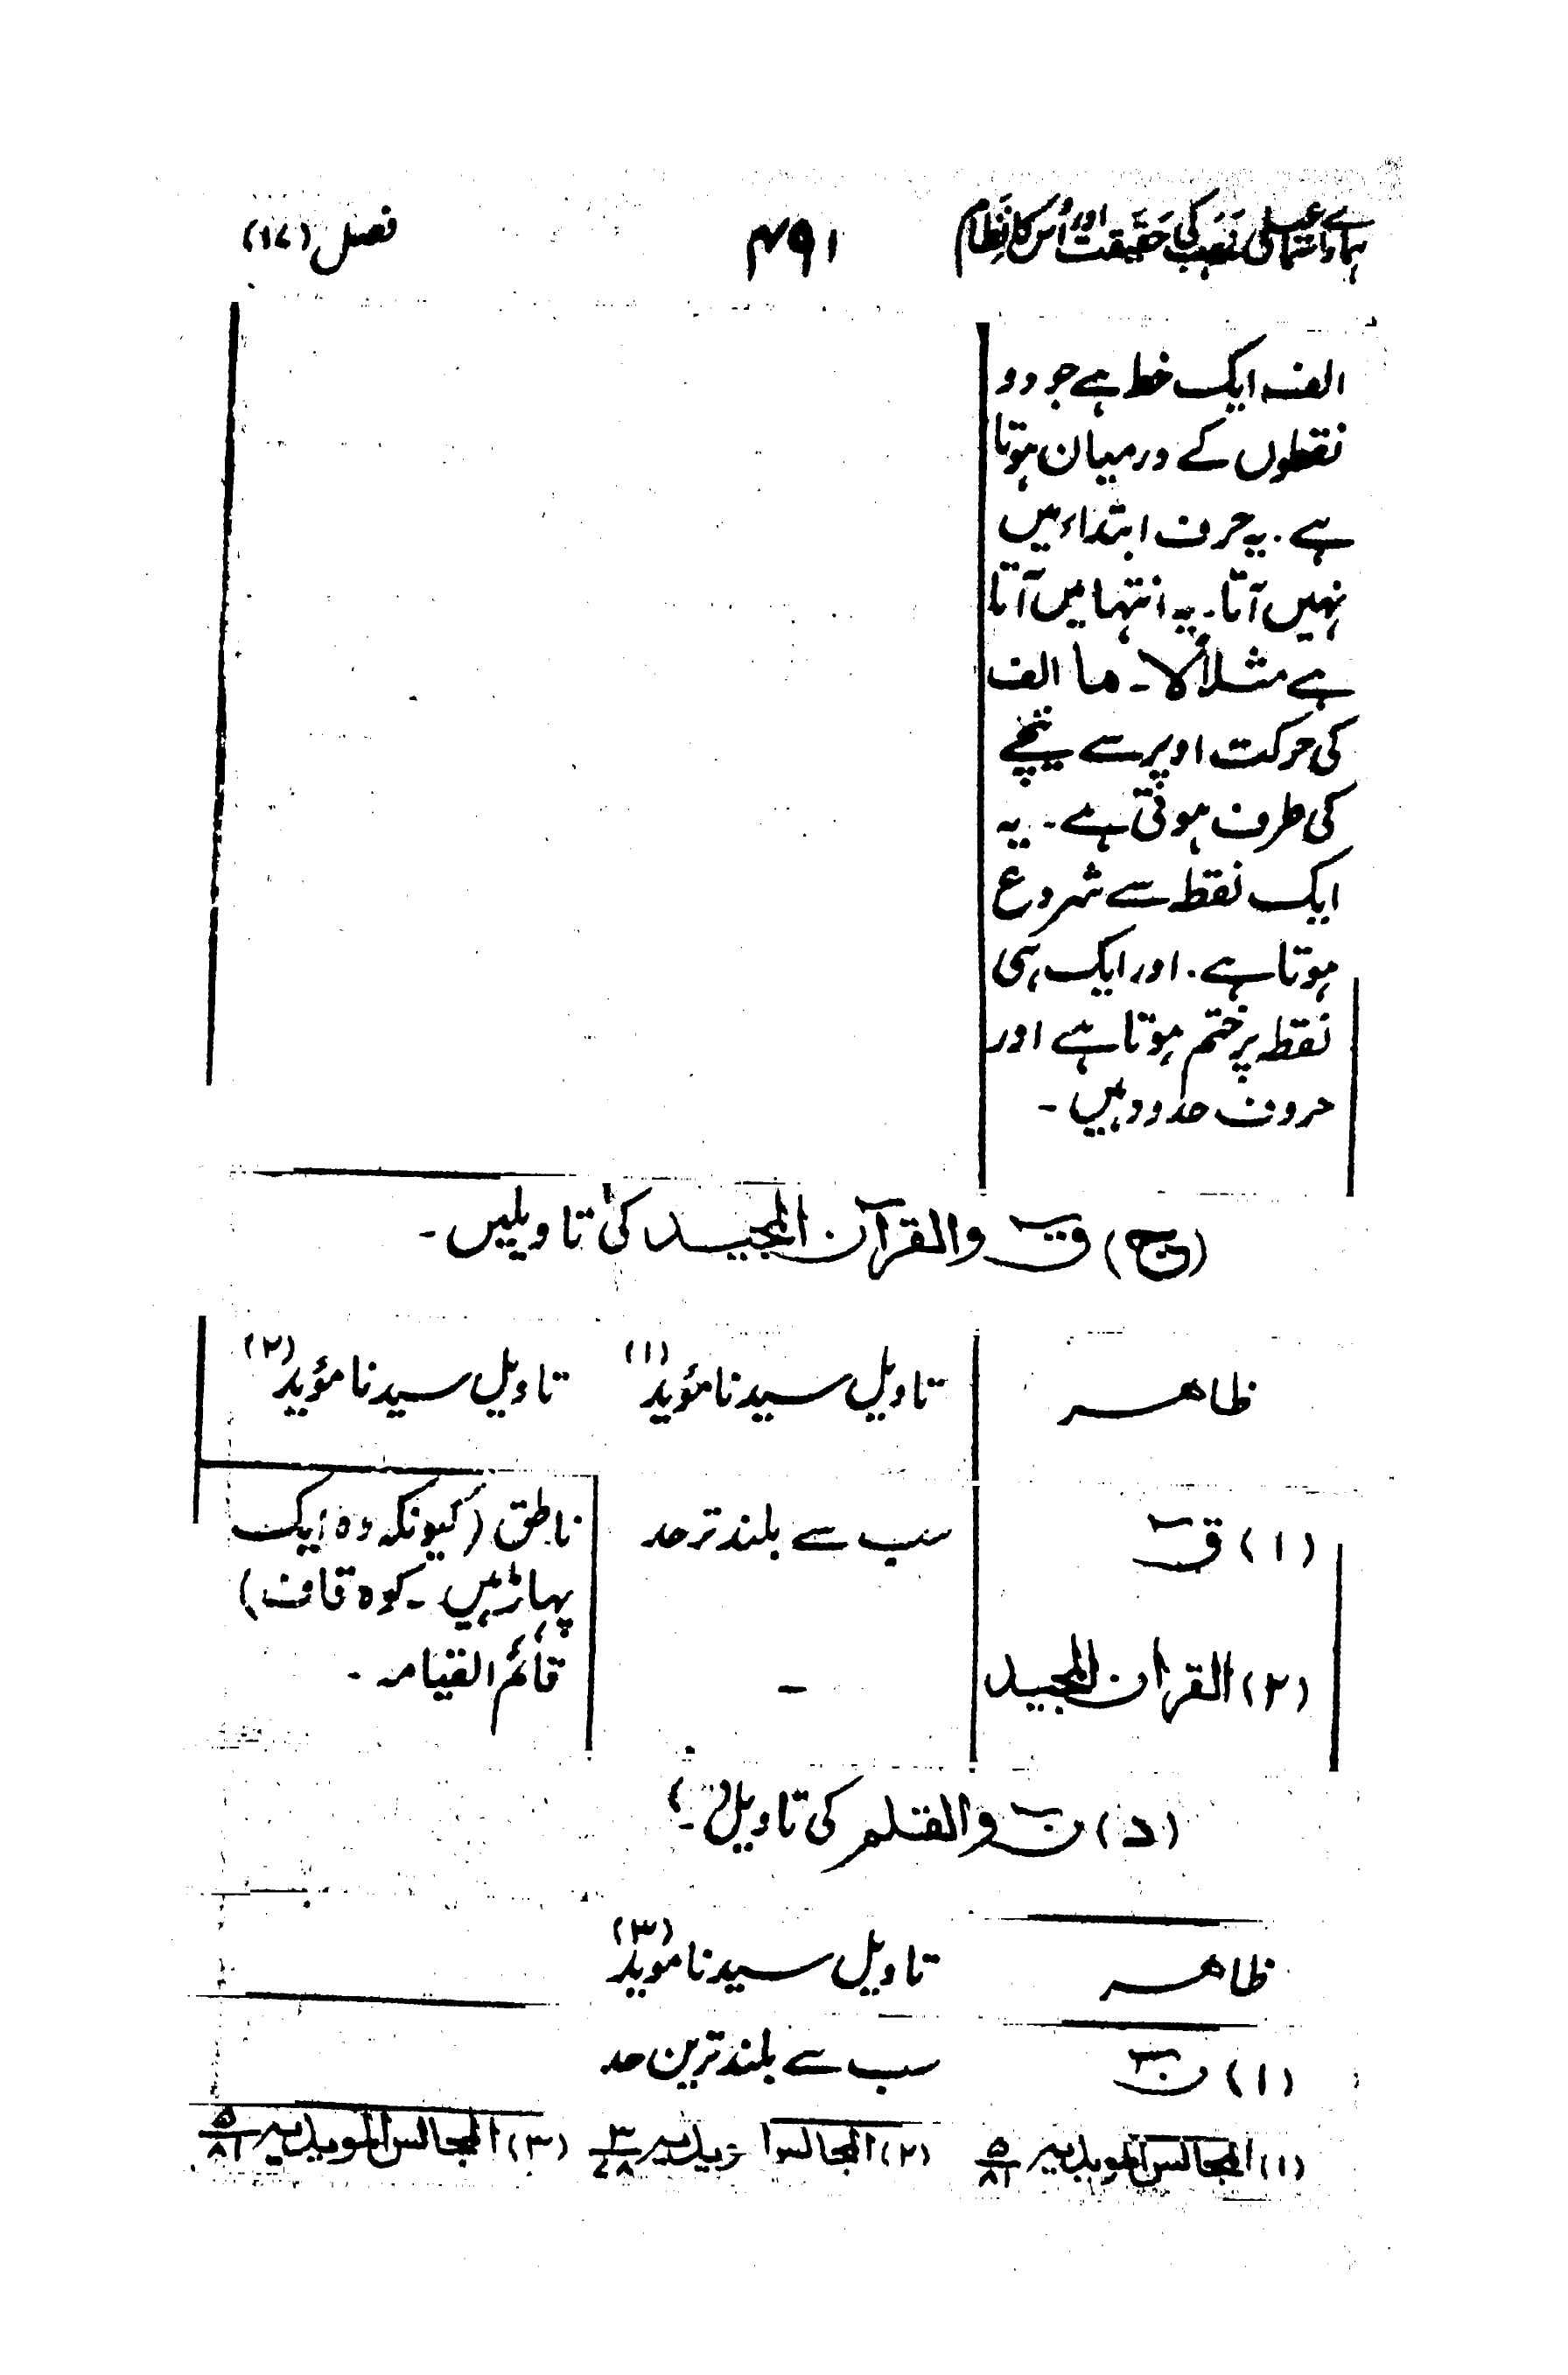 ہمارے اسماعیلی مذہب کی حقیقت اور اُس کا نظام ۴۹۱ فصل (۱۷)
الف ایک خط ہے جو دو
نقطوں کے درمیان ہوتا
ہے۔ یہ حرف ابتداء میں
نہیں آتا۔ یہ انتہا میں آتا
ہے مثلاً لا۔ ما الف
کی حرکت اوپر سے نیچے
کی طرف ہوتی ہے۔ یہ
ایک نقطہ سے شروع
ہوتا ہے۔ اور ایک ہی
نقطہ پر ختم ہوتا ہے اور
حروف حدود ہیں۔
(ج) قٓ والقرآن المجید کی تاویلیں۔
ظاہر تاویل سیدنا مؤید (۱) تاویل سیدنا مؤید (۲)
(۱) قٓ سب سے بلند تر حد ناطق (کیونکہ وہ ایک
پہاڑ ہیں۔ کوہ قاف)
(۲) القران المجید - قائم القیامہ۔
(د) نٓ والقلم کی تاویل۔
ظاہر تاویل سیدنا موید (۳)
(۱) نٓ سب سے بلند ترین حد
(۱) المجالس المویدیہ ۵/۸۱ (۲) المجالس ۳/۴۸ (۳) المجالس المویدیہ ۵/۸۱